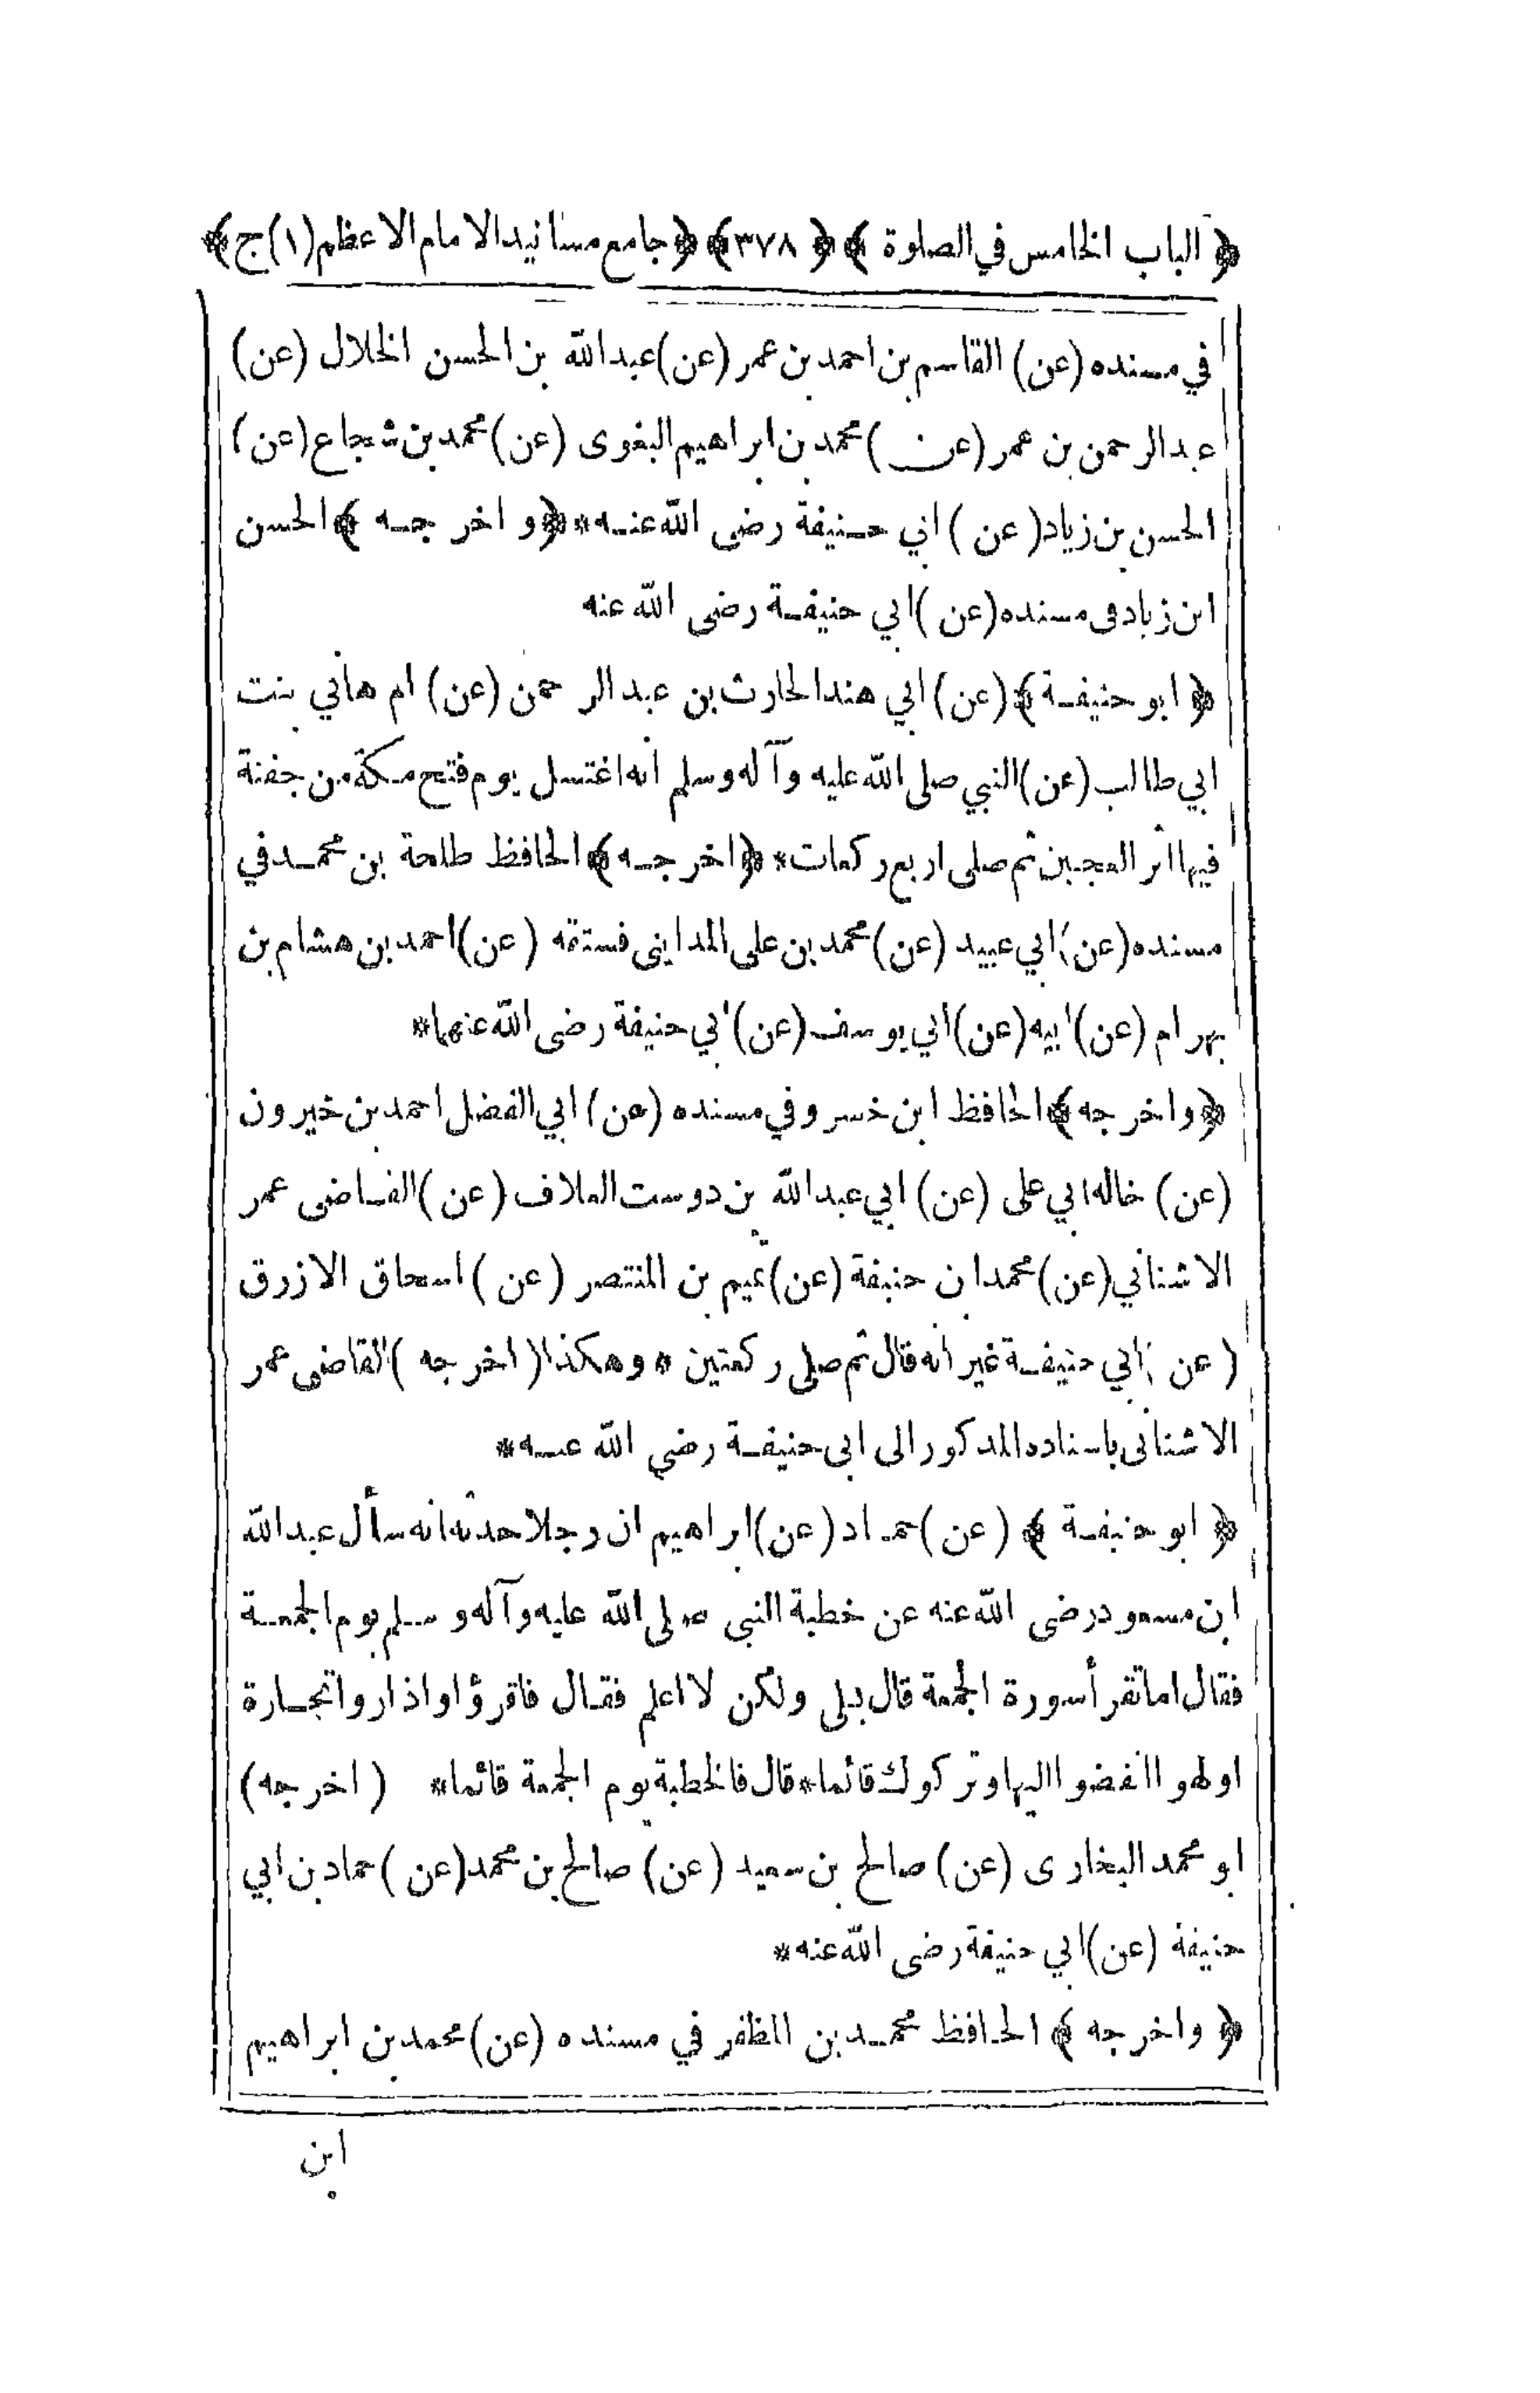 ﴿ الباب الخامس في الصلوة ﴾ ﴿ ٣٧٨ ﴾ ﴿ جامع مسانيد الامام الاعظم (١) ج ﴾
في مسنده (عن) القاسم بن احمد بن عمر (عن) عبدالله بن الحسن الخلال (عن)
عبدالرحمن بن عمر (عن) محمد بن ابراهيم البغوى (عن) محمد بن شجاع (عن)
الحسن بن زياد (عن) ابي حنيفة رضى الله عنه * ﴿ واخرجه ﴾ الحسن
ابن زياد فى مسنده (عن) ابي حنيفة رضى الله عنه
﴿ ابو حنيفة ﴾ (عن) ابي هند الحارث بن عبدالرحمن (عن) ام هاني بنت
ابي طالب (عن) النبي صلى الله عليه وآله وسلم انه اغتسل يوم فتح مكة من جفنة
فيها اثر العجين ثم صلى اربع ركعات * ﴿ اخرجه ﴾ الحافظ طلحة بن محمد في
مسنده (عن) ابي عبيد (عن) محمد بن على المدايني فستقه (عن) احمد بن هشام بن
بهرام (عن) ابيه (عن) ابي يوسف (عن) ابي حنيفة رضى الله عنهما *
﴿ واخرجه ﴾ الحافظ ابن خسرو في مسنده (عن) ابي الفضل احمد بن خيرون
(عن) خاله ابي على (عن) ابي عبدالله بن دوست العلاف (عن) القاضى عمر
الاشناني (عن) محمد ان حنيفة (عن) تميم بن المنتصر (عن) اسحاق الازرق
(عن) ابي حنيفة غير انه قال ثم صلى ركعتين * وهكذا (اخرجه) القاضى عمر
الاشنانى باسناده المذكور الى ابى حنيفة رضي الله عنه *
﴿ ابو حنيفة ﴾ (عن) حماد (عن) ابراهيم ان رجلا حدثه انه سأل عبدالله
ابن مسعود رضى الله عنه عن خطبة النبى صلى الله عليه وآله وسلم يوم الجمعة
فقال اما تقرأ سورة الجمعة قال بلى ولكن لا اعلم فقال فاقرؤا واذا رواتجارة
اولهوا انفضوا اليها وتركوك قائما * قال فالخطبة يوم الجمعة قائما * (اخرجه)
ابو محمد البخارى (عن) صالح بن سعيد (عن) صالح بن محمد (عن) حماد بن ابي
حنيفة (عن) ابي حنيفة رضى الله عنه *
﴿ واخرجه ﴾ الحافظ محمد بن المظفر في مسنده (عن) محمد بن ابراهيم
ابن